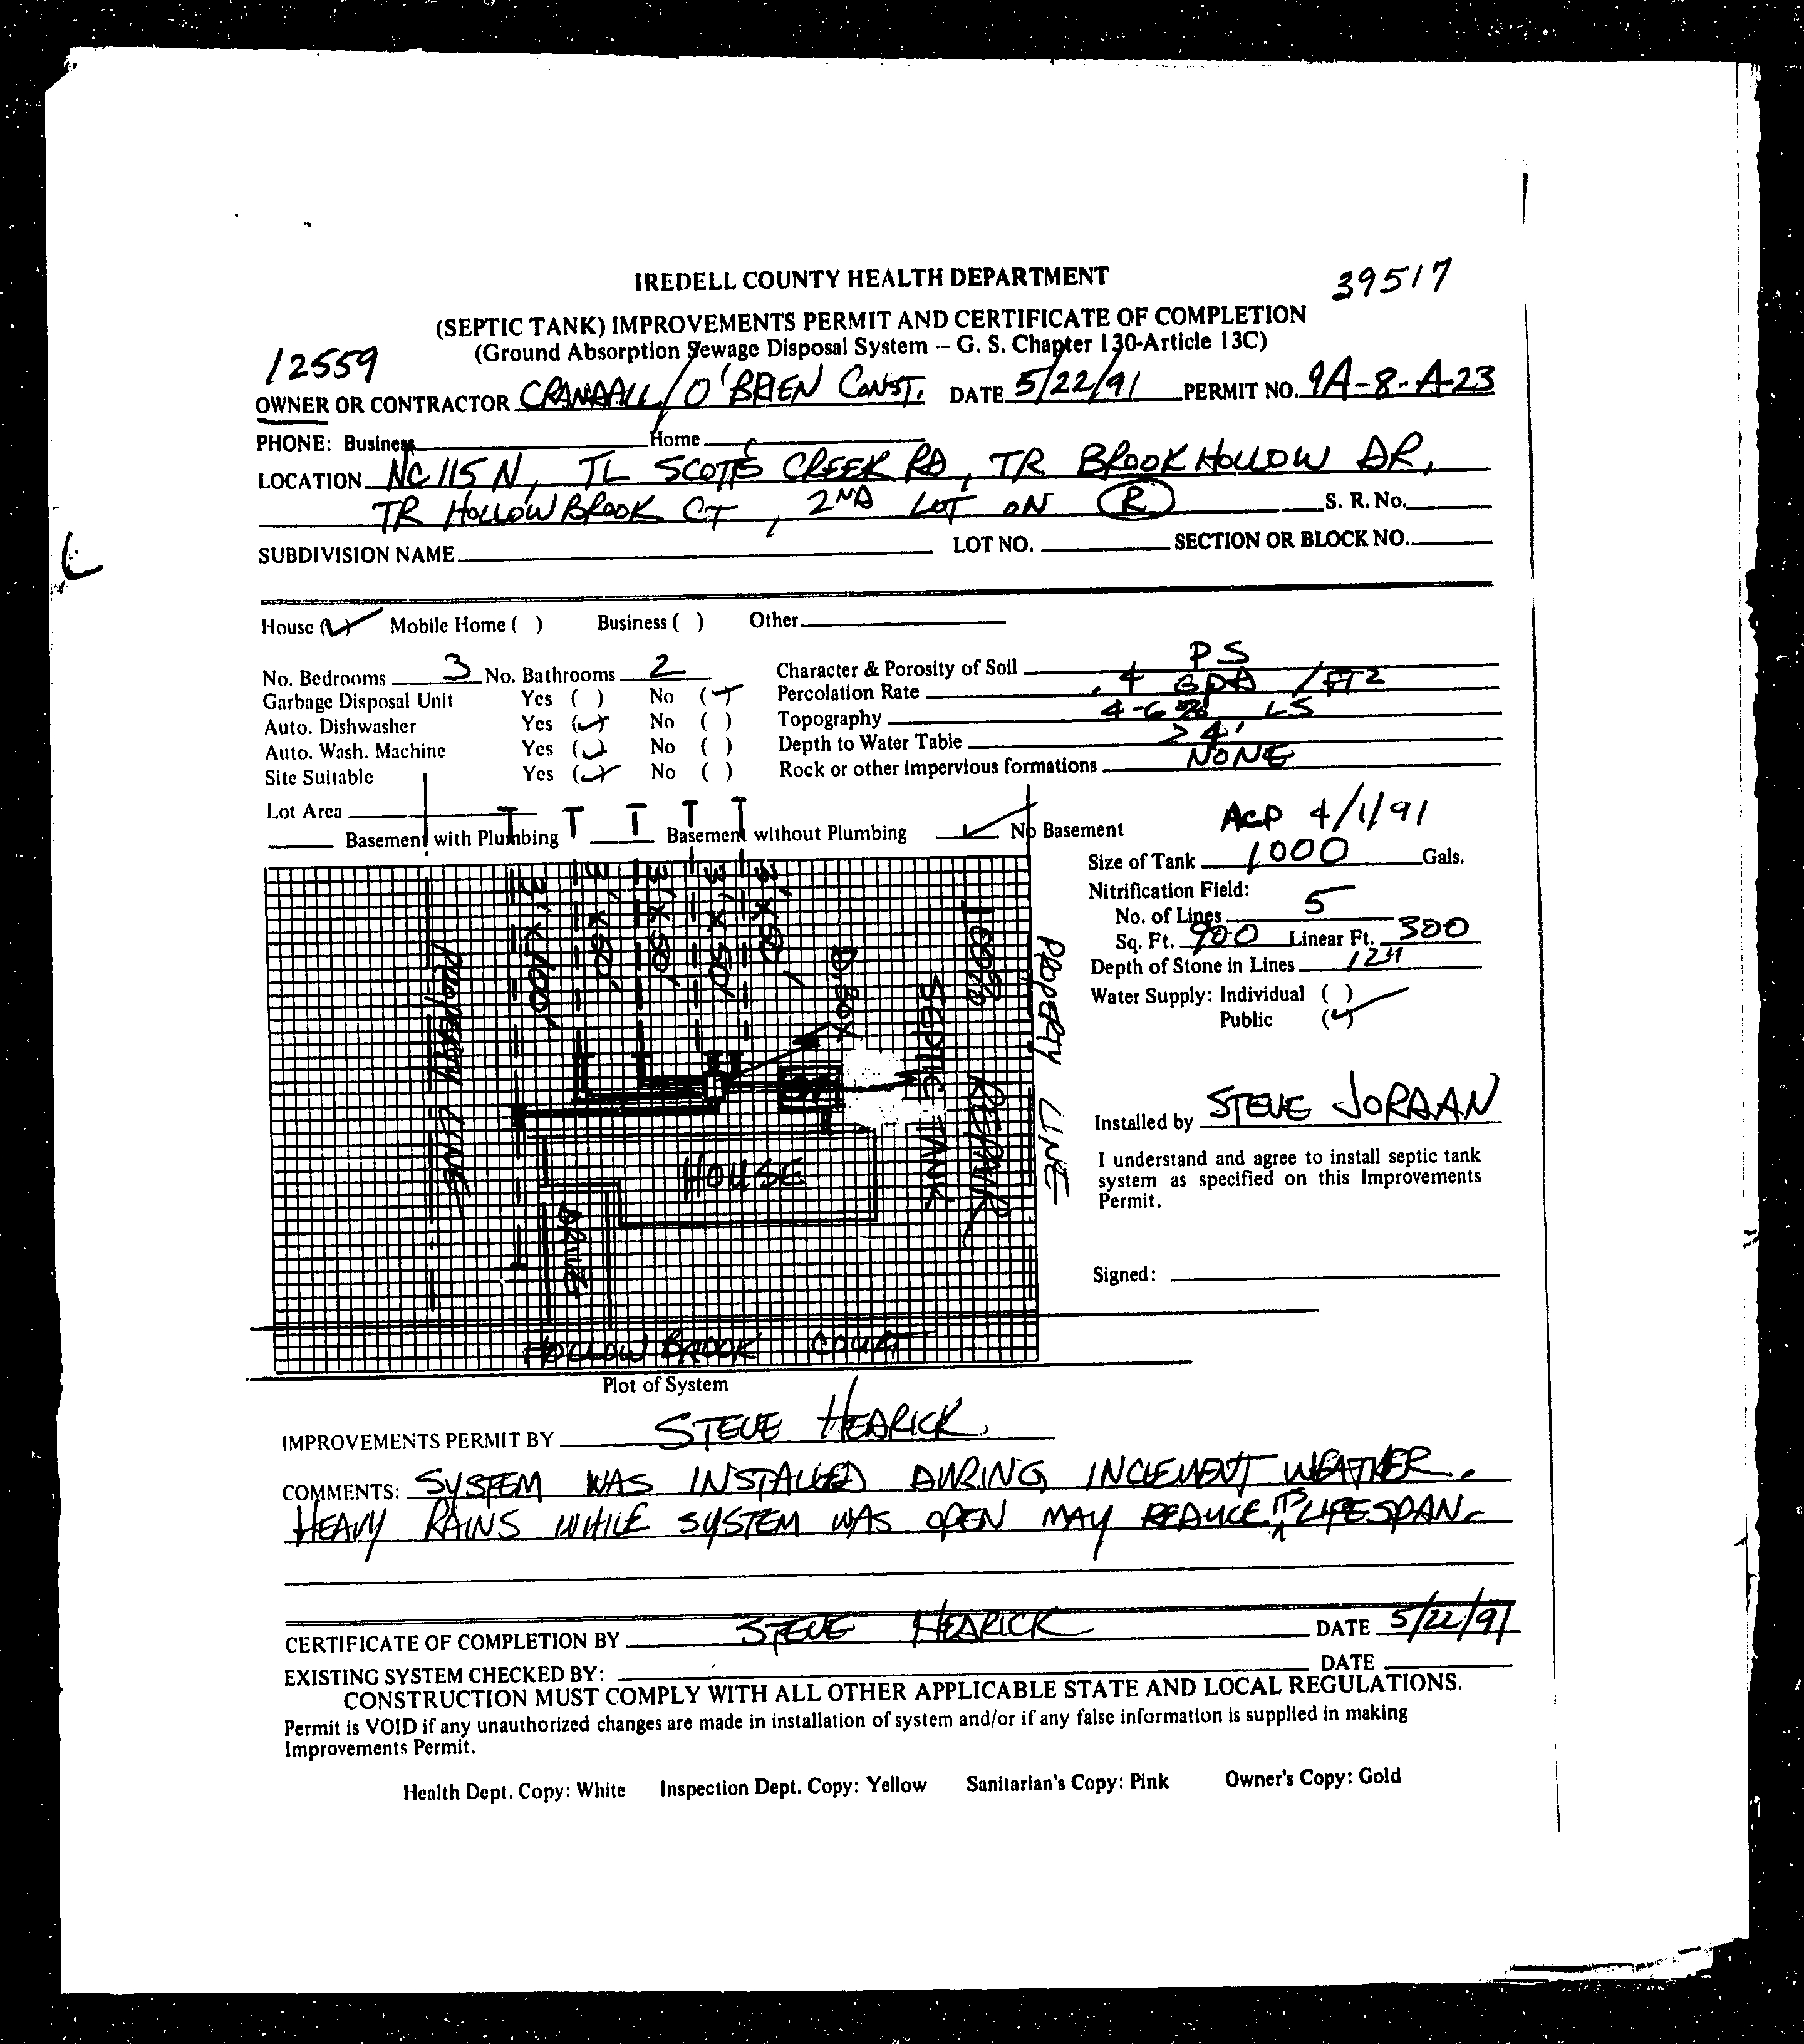 IREDELL COUNTY HEALTH DEPARTMENT
39517
(SEPTIC TANK) IMPROVEMENTS PERMIT AND CERTIFICATE OF COMPLETION
(Ground Absorption Sewage Disposal System -- G. S. Chapter 130-Article 13C)
12559
OWNER OR CONTRACTOR CRANDALL / O'BRIEN CONST. DATE 5/22/91 PERMIT NO. 9A-8-A-23
PHONE: Business Home
LOCATION NC 115 N, TL SCOTTS CREEK RD, TR BROOK HOLLOW DR,
TR HOLLOW BROOK CT, 2ND LOT ON R S. R. No.
SUBDIVISION NAME LOT NO. SECTION OR BLOCK NO.
House (✓) Mobile Home ( ) Business ( ) Other
No. Bedrooms 3 No. Bathrooms 2 Character & Porosity of Soil PS
Garbage Disposal Unit Yes ( ) No (✓) Percolation Rate .4 GPD /FT2
Auto. Dishwasher Yes (✓) No ( ) Topography 4-6% LS
Auto. Wash. Machine Yes (✓) No ( ) Depth to Water Table >4'
Site Suitable Yes (✓) No ( ) Rock or other impervious formations NONE
Lot Area
Basement with Plumbing Basement without Plumbing ✓ No Basement
T T T T T
ACP 4/1/91
Size of Tank 1000 Gals.
Nitrification Field:
No. of Lines 5
Sq. Ft. 900 Linear Ft. 300
Depth of Stone in Lines 12"
Water Supply: Individual ( )
Public (✓)
PROPERTY LINE
3' x 100'
3' x 50'
3' x 50'
3' x 50'
3' x 50'
D. BOX
SEPTIC TANK
REPAIR
PROPERTY LINE
ST
HOUSE
DRIVE
HOLLOW BROOK COURT
Plot of System
Installed by STEVE JORDAN
I understand and agree to install septic tank
system as specified on this Improvements
Permit.
Signed:
IMPROVEMENTS PERMIT BY STEVE HEDRICK
COMMENTS: SYSTEM WAS INSTALLED DURING INCLEMENT WEATHER.
HEAVY RAINS WHILE SYSTEM WAS OPEN MAY REDUCE ITS LIFESPAN.
CERTIFICATE OF COMPLETION BY STEVE HEDRICK DATE 5/22/91
EXISTING SYSTEM CHECKED BY: DATE
CONSTRUCTION MUST COMPLY WITH ALL OTHER APPLICABLE STATE AND LOCAL REGULATIONS.
Permit is VOID if any unauthorized changes are made in installation of system and/or if any false information is supplied in making
Improvements Permit.
Health Dept. Copy: White Inspection Dept. Copy: Yellow Sanitarian's Copy: Pink Owner's Copy: Gold